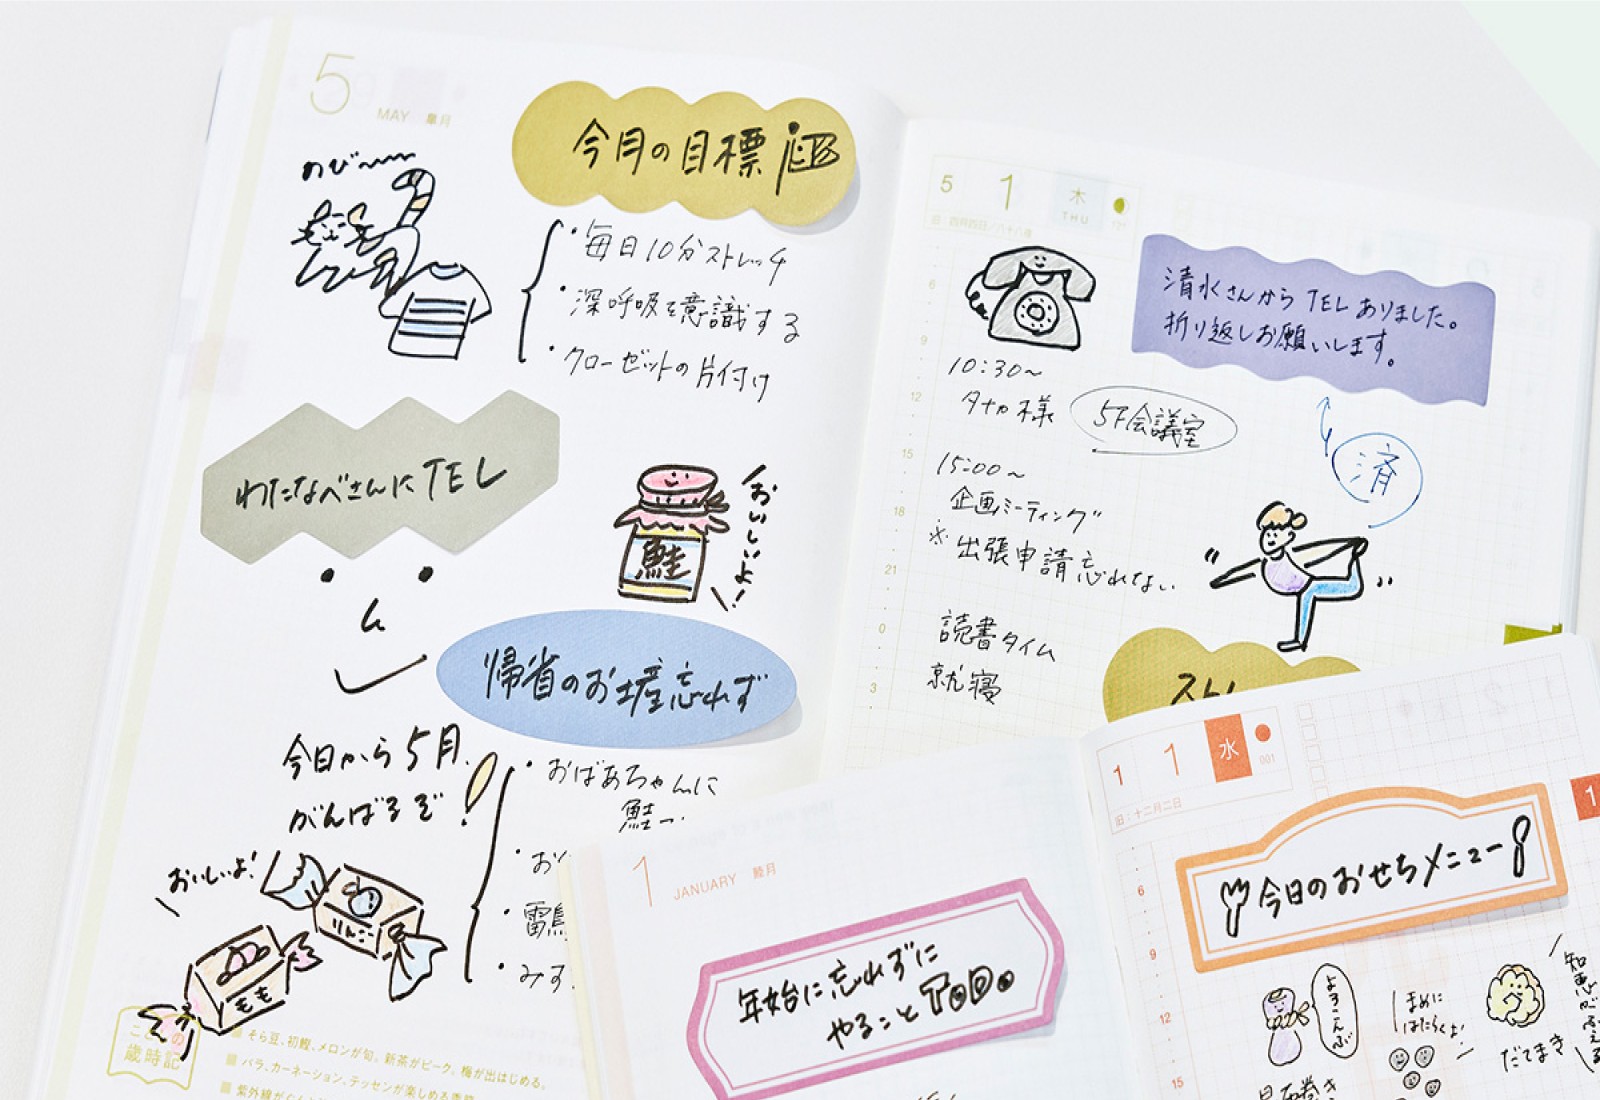 5
MAY 皐月
のび〜
今月の目標
・毎日10分ストレッチ
・深呼吸を意識する
・クローゼットの片付け
わたなべさんにTEL
鮭
おいしいよ!
帰省のお土産忘れず
今日から5月、
がんばるぞ!
・おばあちゃんに
鮭
・お
・雷鳥
・みす
おいしいよ!
りんご
もも
歳時記
そら豆、初鰹、メロンが旬。新茶がピーク。梅が出はじめる。
バラ、カーネーション、テッセンが楽しめる季節
5 1 木
THU
121
旧：四月四日／八十八夜
6
9
12
15
18
21
0
3
清水さんからTELありました。
折り返しお願いします。
済
10:30〜
タナカ様 5F会議室
15:00〜
企画ミーティング
※出張申請忘れない
読書タイム
就寝
スト
1
JANUARY 睦月
年始に忘れずに
やること TODO
1 1 水
001
旧：十二月二日
1
6
9
12
15
今日のおせちメニュー
よろこんぶ
まめに
はたらくよ!
だてまき